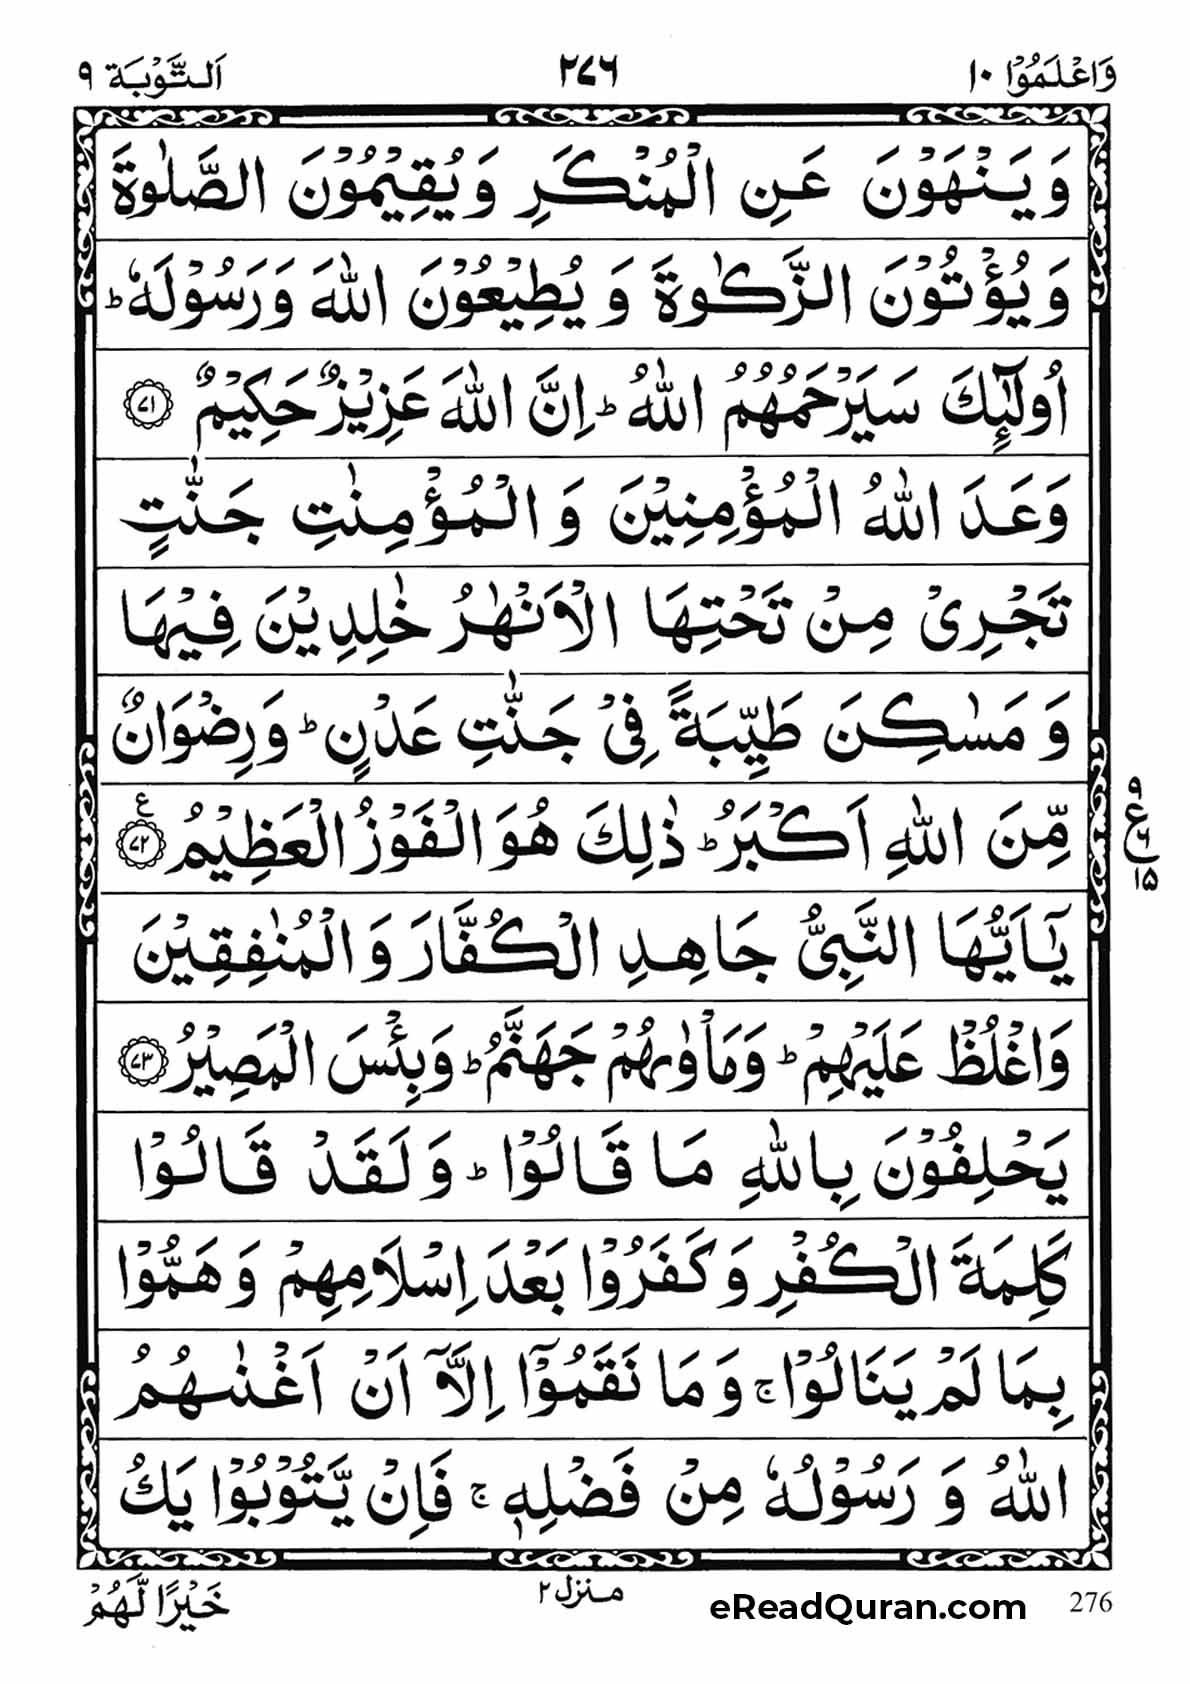 وَاعْلَمُوْۤا ١٠
٢٧٦
اَلتَّوْبَة ٩
وَ يَنْهَوْنَ عَنِ الْمُنْكَرِ وَ يُقِيْمُوْنَ الصَّلٰوةَ
وَ يُؤْتُوْنَ الزَّكٰوةَ وَ يُطِيْعُوْنَ اللّٰهَ وَ رَسُوْلَهٗ ؕ
اُولٰٓئِكَ سَيَرْحَمُهُمُ اللّٰهُ ؕ اِنَّ اللّٰهَ عَزِيْزٌ حَكِيْمٌ ﴿٧١﴾
وَعَدَ اللّٰهُ الْمُؤْمِنِيْنَ وَ الْمُؤْمِنٰتِ جَنّٰتٍ
تَجْرِیْ مِنْ تَحْتِهَا الْاَنْهٰرُ خٰلِدِيْنَ فِيْهَا
وَ مَسٰكِنَ طَيِّبَةً فِیْ جَنّٰتِ عَدْنٍ ؕ وَ رِضْوَانٌ
مِّنَ اللّٰهِ اَكْبَرُ ؕ ذٰلِكَ هُوَ الْفَوْزُ الْعَظِيْمُ ﴿٧٢﴾ ع
٩
ع
٢
١٥
يٰۤاَيُّهَا النَّبِیُّ جَاهِدِ الْكُفَّارَ وَ الْمُنٰفِقِيْنَ
وَاغْلُظْ عَلَيْهِمْ ؕ وَمَاْوٰىهُمْ جَهَنَّمُ ؕ وَبِئْسَ الْمَصِيْرُ ﴿٧٣﴾
يَحْلِفُوْنَ بِاللّٰهِ مَا قَالُوْا ؕ وَ لَقَدْ قَالُوْا
كَلِمَةَ الْكُفْرِ وَ كَفَرُوْا بَعْدَ اِسْلَامِهِمْ وَ هَمُّوْا
بِمَا لَمْ يَنَالُوْا ۚ وَ مَا نَقَمُوْۤا اِلَّاۤ اَنْ اَغْنٰىهُمُ
اللّٰهُ وَ رَسُوْلُهٗ مِنْ فَضْلِهٖ ۚ فَاِنْ يَّتُوْبُوْا يَكُ
خَيْرًا لَّهُمْ
منزل ٢
eReadQuran.com
276